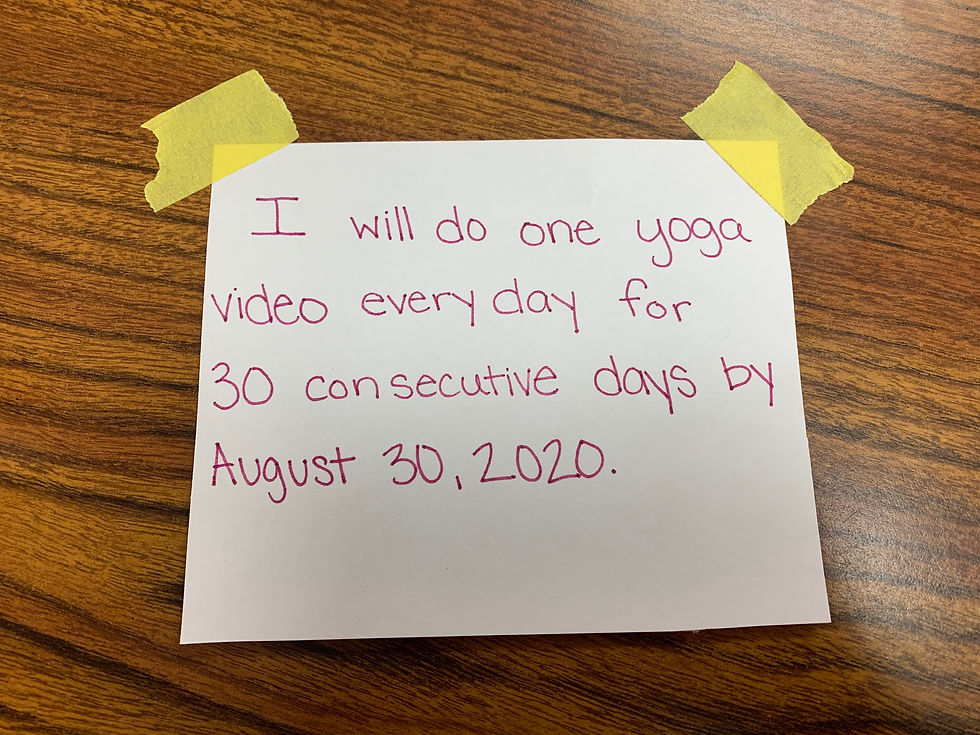 I will do one yoga
video every day for
30 consecutive days by
August 30, 2020.